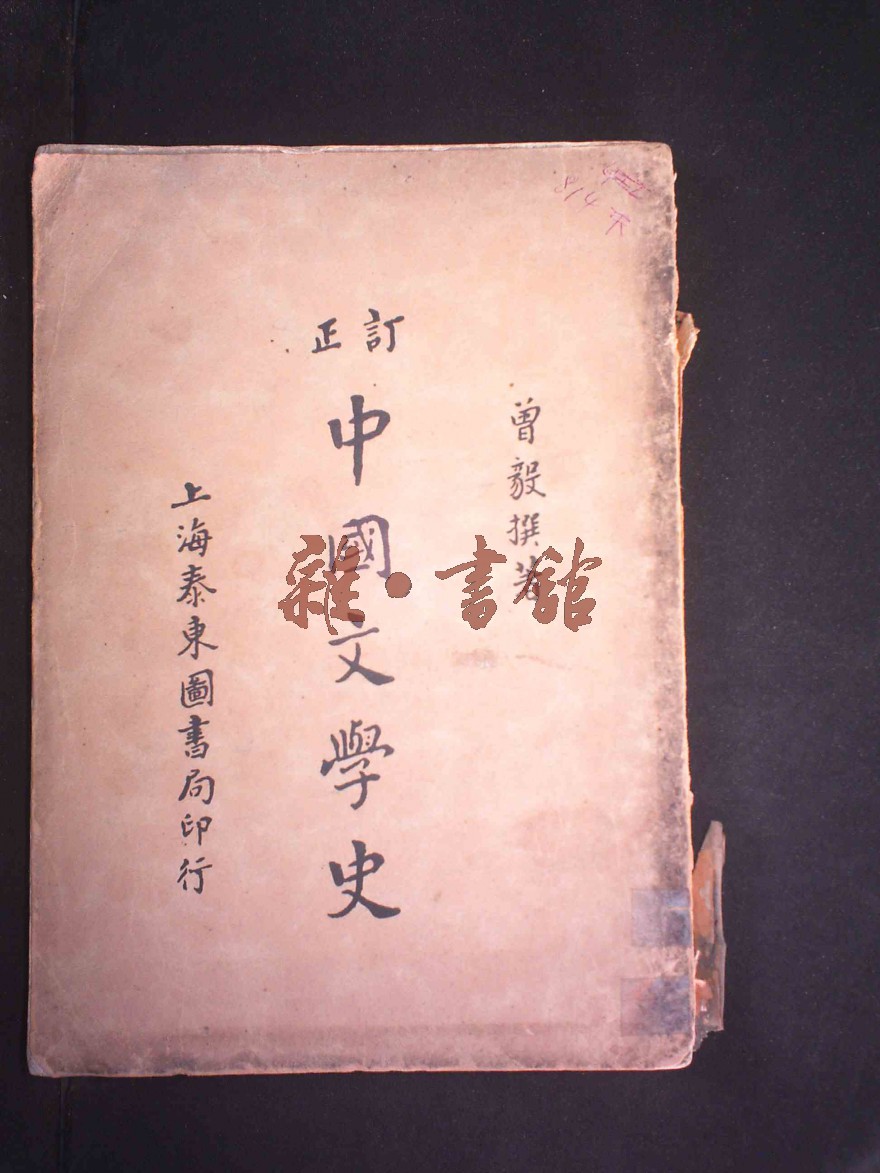 曾毅撰著
訂正
中國文學史
上海泰東圖書局印行
雜·書館
814